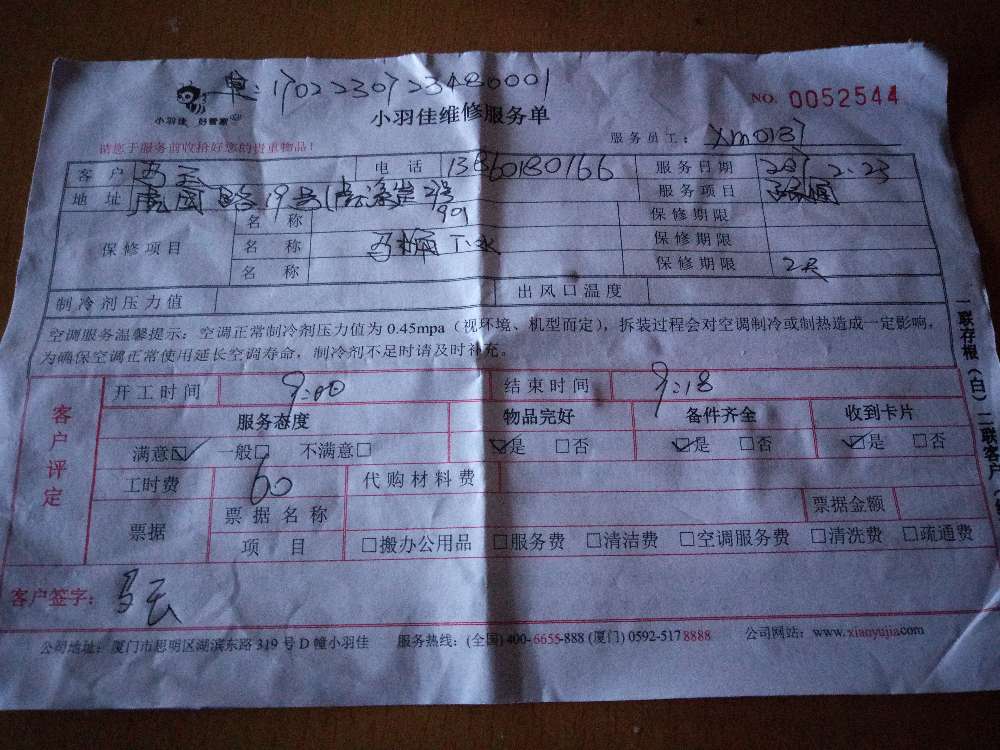 单: 1702230723480001
小羽佳 好管家
小羽佳维修服务单
NO. 0052544
请您于服务前收拾好您的贵重物品!
服务员工: xm0187
客户 马云 电话 13860180166 服务日期 2.23
地址 路19号 901 服务项目
保修项目 名称 保修期限
名称 马桶下水 保修期限
名称 保修期限 2天
制冷剂压力值 出风口温度
空调服务温馨提示: 空调正常制冷剂压力值为 0.45mpa (视环境、机型而定), 拆装过程会对空调制冷或制热造成一定影响,
为确保空调正常使用延长空调寿命, 制冷剂不足时请及时补充。
客户评定
开工时间 9:00 结束时间 9:18
服务态度 物品完好 备件齐全 收到卡片
满意☑ 一般□ 不满意□ ☑是 □否 ☑是 □否 ☑是 □否
工时费 60 代购材料费
票据 票据名称 票据金额
项目 □搬办公用品 □服务费 □清洁费 □空调服务费 □清洗费 □疏通费
客户签字: 马云
公司地址: 厦门市思明区湖滨东路 319 号 D 幢小羽佳 服务热线: (全国) 400-6655-888 (厦门) 0592-517 8888 公司网站: www.xiaoyujia.com
一联存根(白) 二联客户